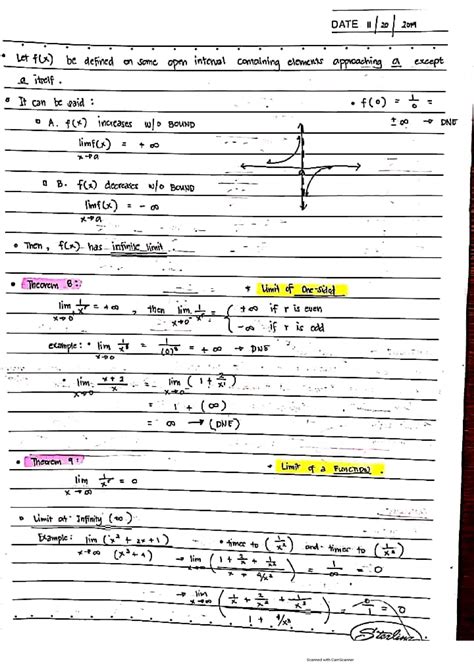 DATE 11/20/2019
• Let f(x) be defined on some open interval containing elements approaching a except
a itself.
• It can be said:
• f(0) = 1/0 =
± ∞ → DNE
A. f(x) increases w/o BOUND
lim f(x) = + ∞
x→a
B. f(x) decreases w/o BOUND
lim f(x) = - ∞
x→a
• Then, f(x) has infinite limit
• Theorem 8:
* Limit of One-sided
lim 1/x^r = +∞, then lim 1/x^r = { +∞ if r is even
x→0 x→0⁻ -∞ if r is odd
example: • lim 1/x⁸ = 1/(0)⁸ = + ∞ → DNE
x→0
• lim x+2/x = lim (1 + 2/x)
x→0 x→0
= 1 + (∞)
= ∞ → (DNE)
• Theorem 9:
• Limit of a FUNCTION.
lim 1/x^r = 0
x → ∞
Limit at Infinity (+∞)
Example: lim (x² + 2x + 1)
x→∞ (x³ + 4)
• times to (1/x²) and times to (1/x²)
→ lim (1 + 2/x + 1/x² / x + 4/x²) = 1/∞ = 0
x→∞
→ lim (1/x + 2/x² + 1/x³ / 1 + 4/x³) = 0/1 = 0
x→∞
Scanned with CamScanner